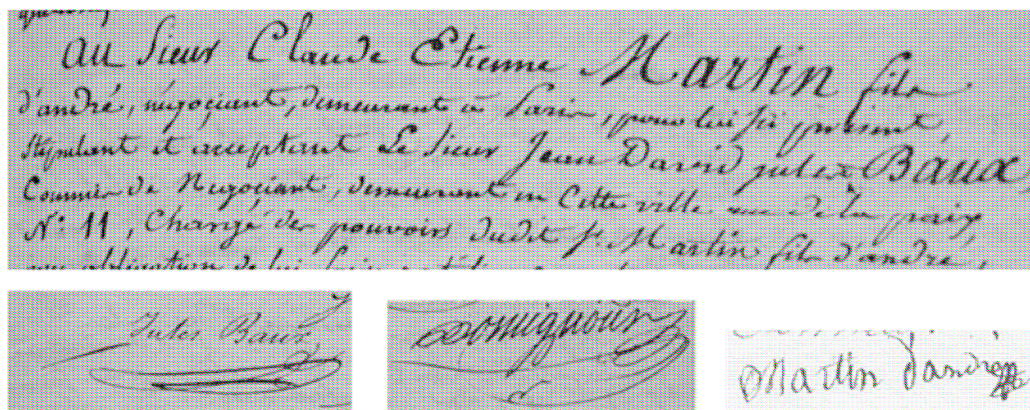 au Sieur Claude Etienne Martin fils
d'andré, négociant, demeurant à Paris, pour lui ici présent,
Stipulant et acceptant Le Sieur Jean David jules Baux,
Commis de Négociant, demeurant en Cette ville rue de la paix
N.° 11, Chargé des pouvoirs dudit Sr. Martin fils d'andré,
une obligation de lui
Jules Baux
Martin d'andré